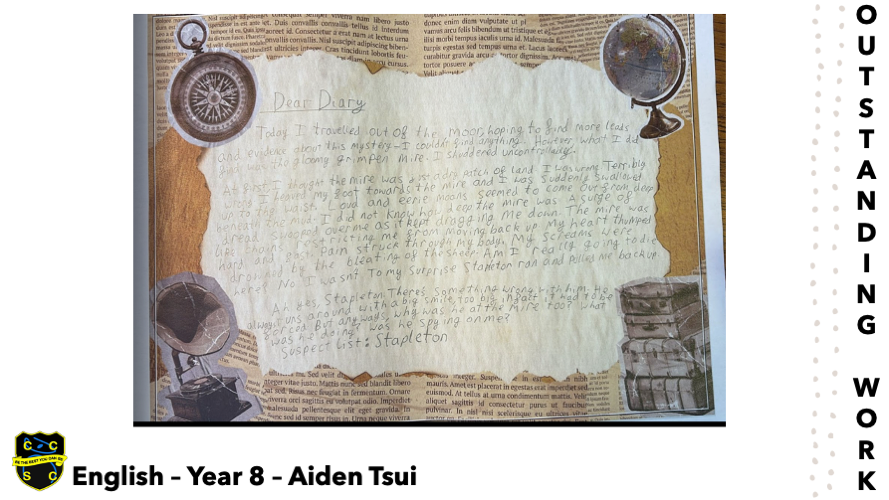 Dear Diary
Today I travelled out of the moor, hoping to find more leads
and evidence about this mystery - I couldn't find anything. However what I did
find was the gloomy grimpen mire. I shuddered uncontrollably.
At first, I thought the mire was just a dry patch of land I was wrong Terribly
wrong I heaved my foot towards the mire and I was suddenly swallowed
up to the waist. Loud and eerie moans seemed to come over from deep
beneath the mud. I did not know how deep the mire was A surge of
dread swooped over me as it kept dragging me down. The mire was
like chains restricting me from moving back up My heart thumped
hard and fast. Pain struck through my body. My screams were
drowned by the bleating of the sheep. Am I really going to die
here? No I wasnt To my surprise Stapleton ran and pulled me back up
Ah yes, Stapleton. There's something wrong with him. He
always runs around with a big smile, too big, infact it had to be
forced But anyways, why was he at the mire too? what
was he doing? was he spying on me?
Suspect list: Stapleton
C C
BE THE BEST YOU CAN BE
S C
English – Year 8 – Aiden Tsui
OUTSTANDING WORK